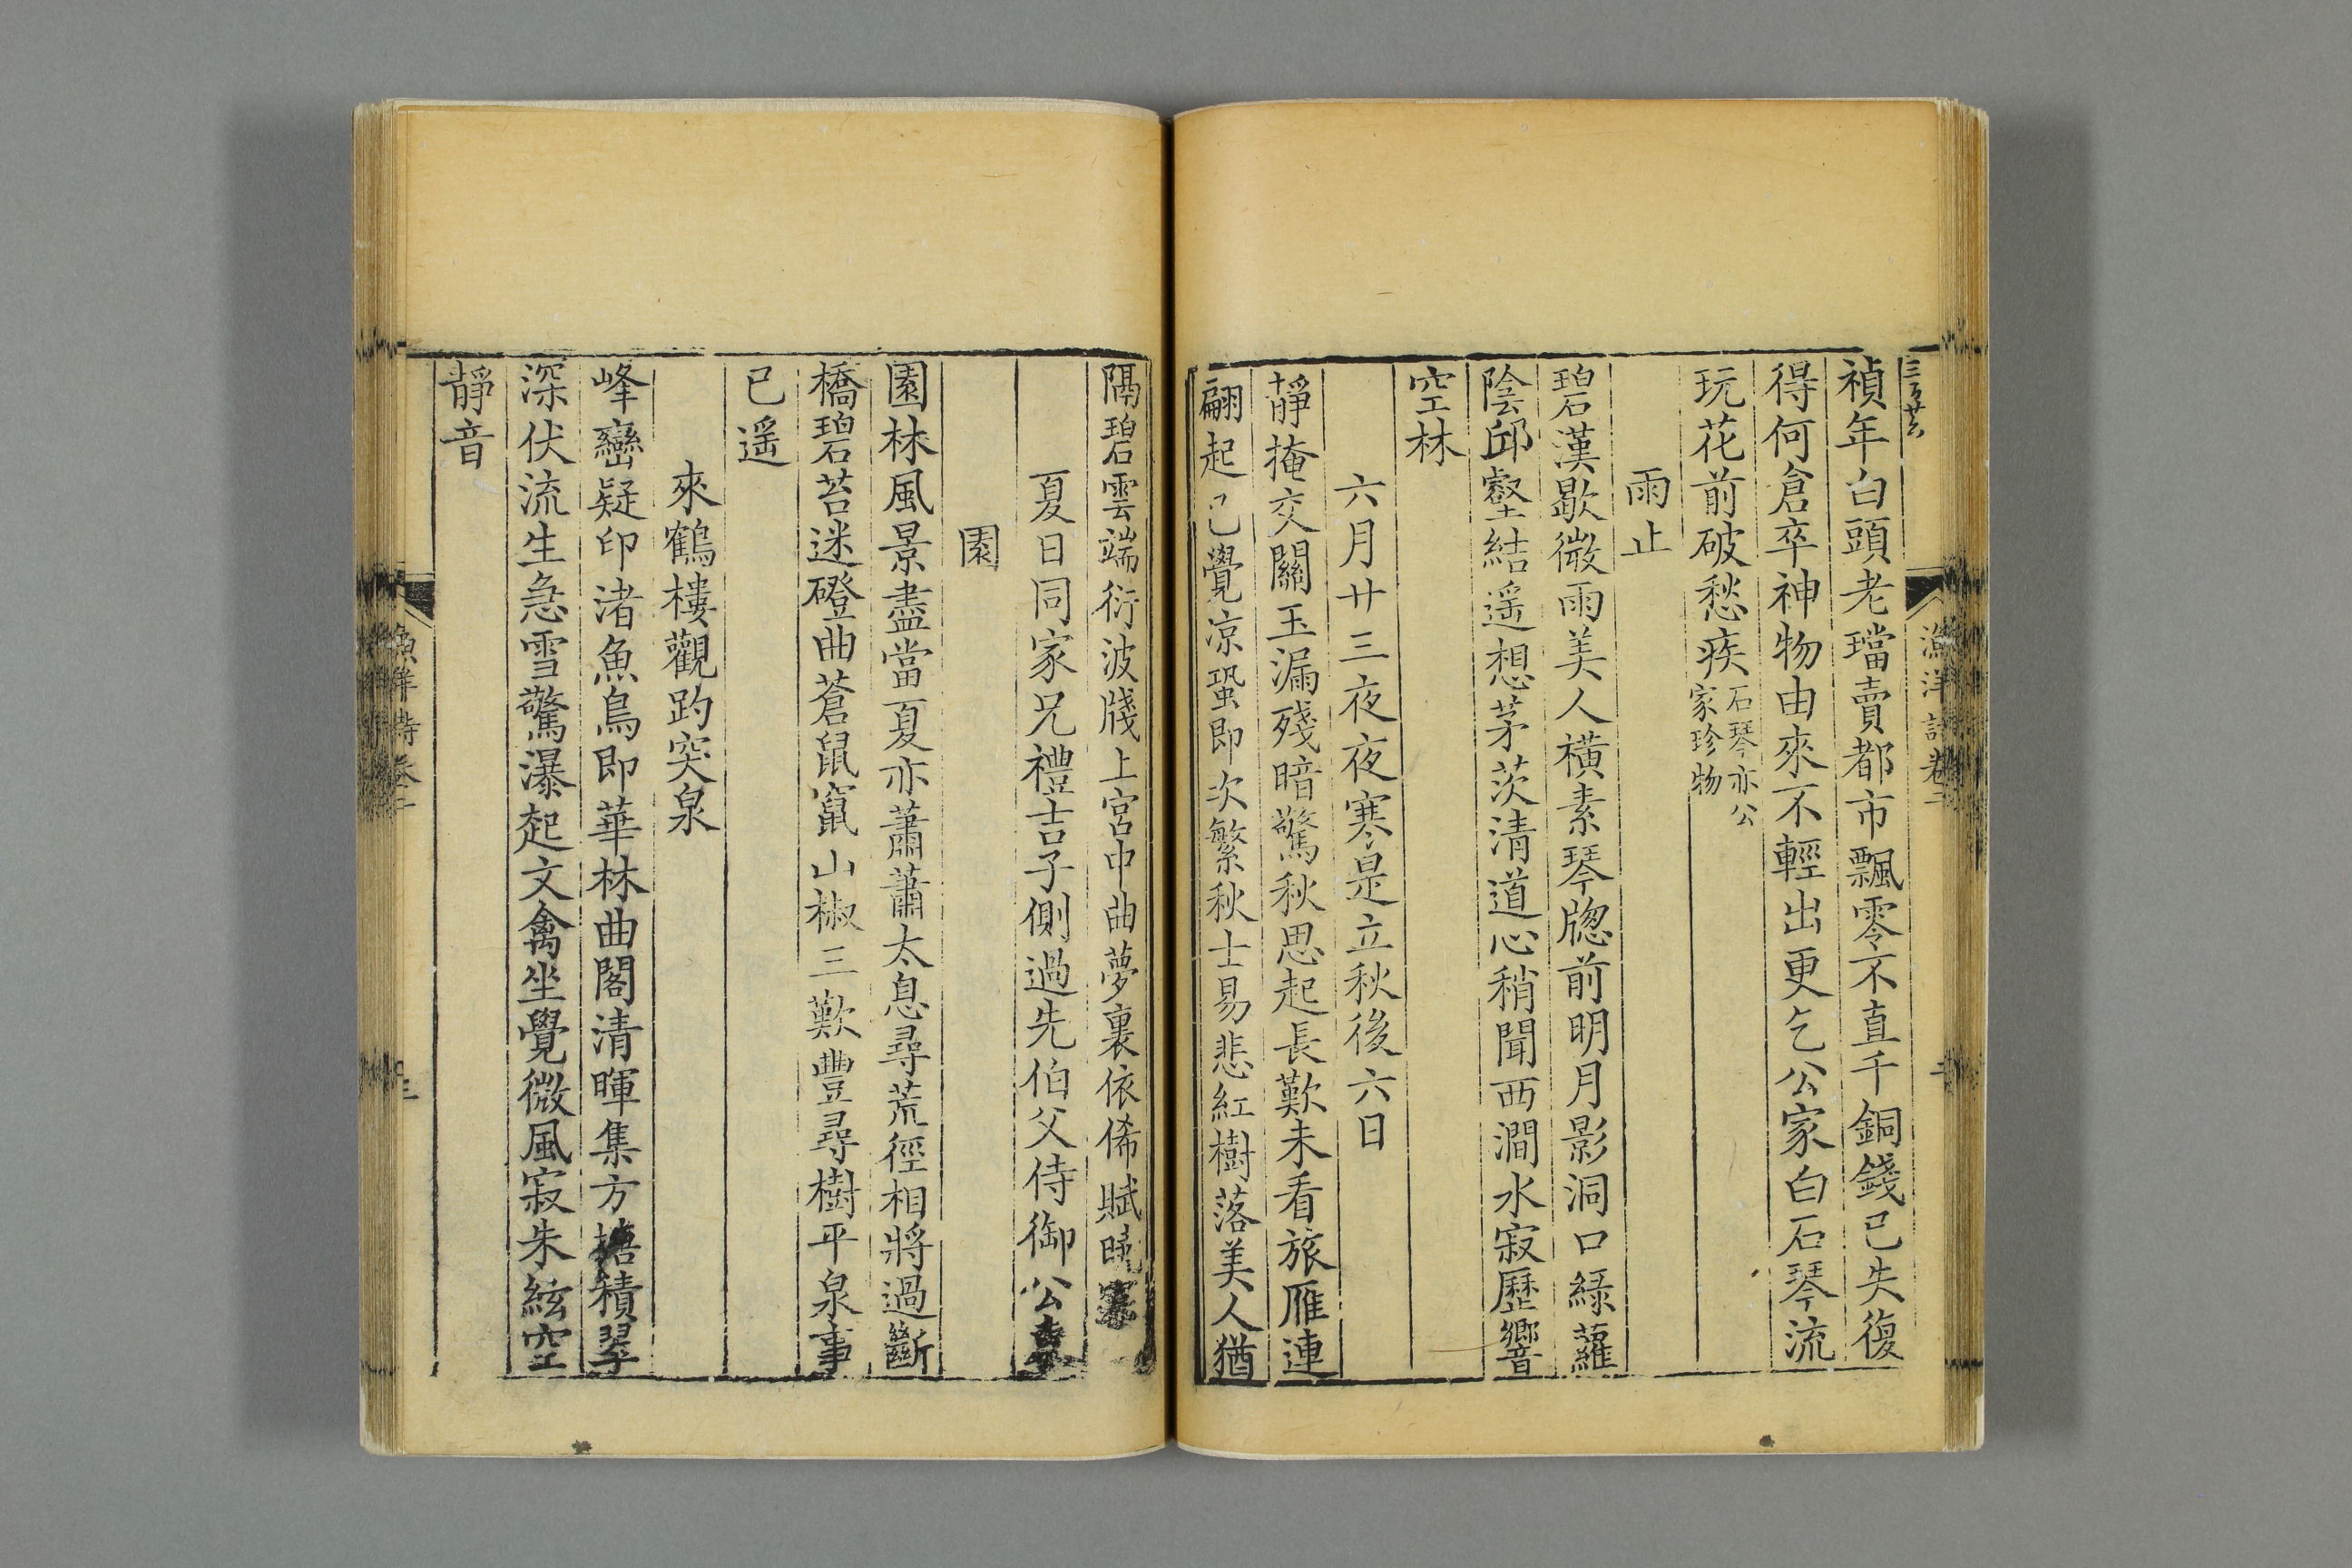 禎年白頭老璫賣都市飄零不直千銅錢已失復
得何倉卒神物由來不輕出更乞公家白石琴流
玩花前破愁疾石琴亦公家珍物
雨止
碧漢歇微雨美人橫素琴牕前明月影洞口綠蘿
陰邱壑結遥想茅茨清道心稍聞西澗水寂歷響
空林
六月廿三夜夜寒是立秋後六日
靜掩交關玉漏殘暗驚秋思起長歎未看旅雁連
翩起已覺凉蛩即次繁秋士易悲紅樹落美人猶
隔碧雲端衍波牋上宮中曲夢裏依俙賦曉寒
夏日同家兄禮吉子側過先伯父侍御公東
園
園林風景盡當夏亦蕭蕭太息尋荒徑相將過斷
橋碧苔迷磴曲蒼鼠竄山椒三歎豐尋樹平泉事
已遥
來鶴樓觀趵突泉
峰巒疑印渚魚鳥即華林曲閣清暉集方塘積翠
深伏流生急雪驚瀑起文禽坐覺微風寂朱絃空
靜音
漁洋詩卷二
漁洋詩卷二
三